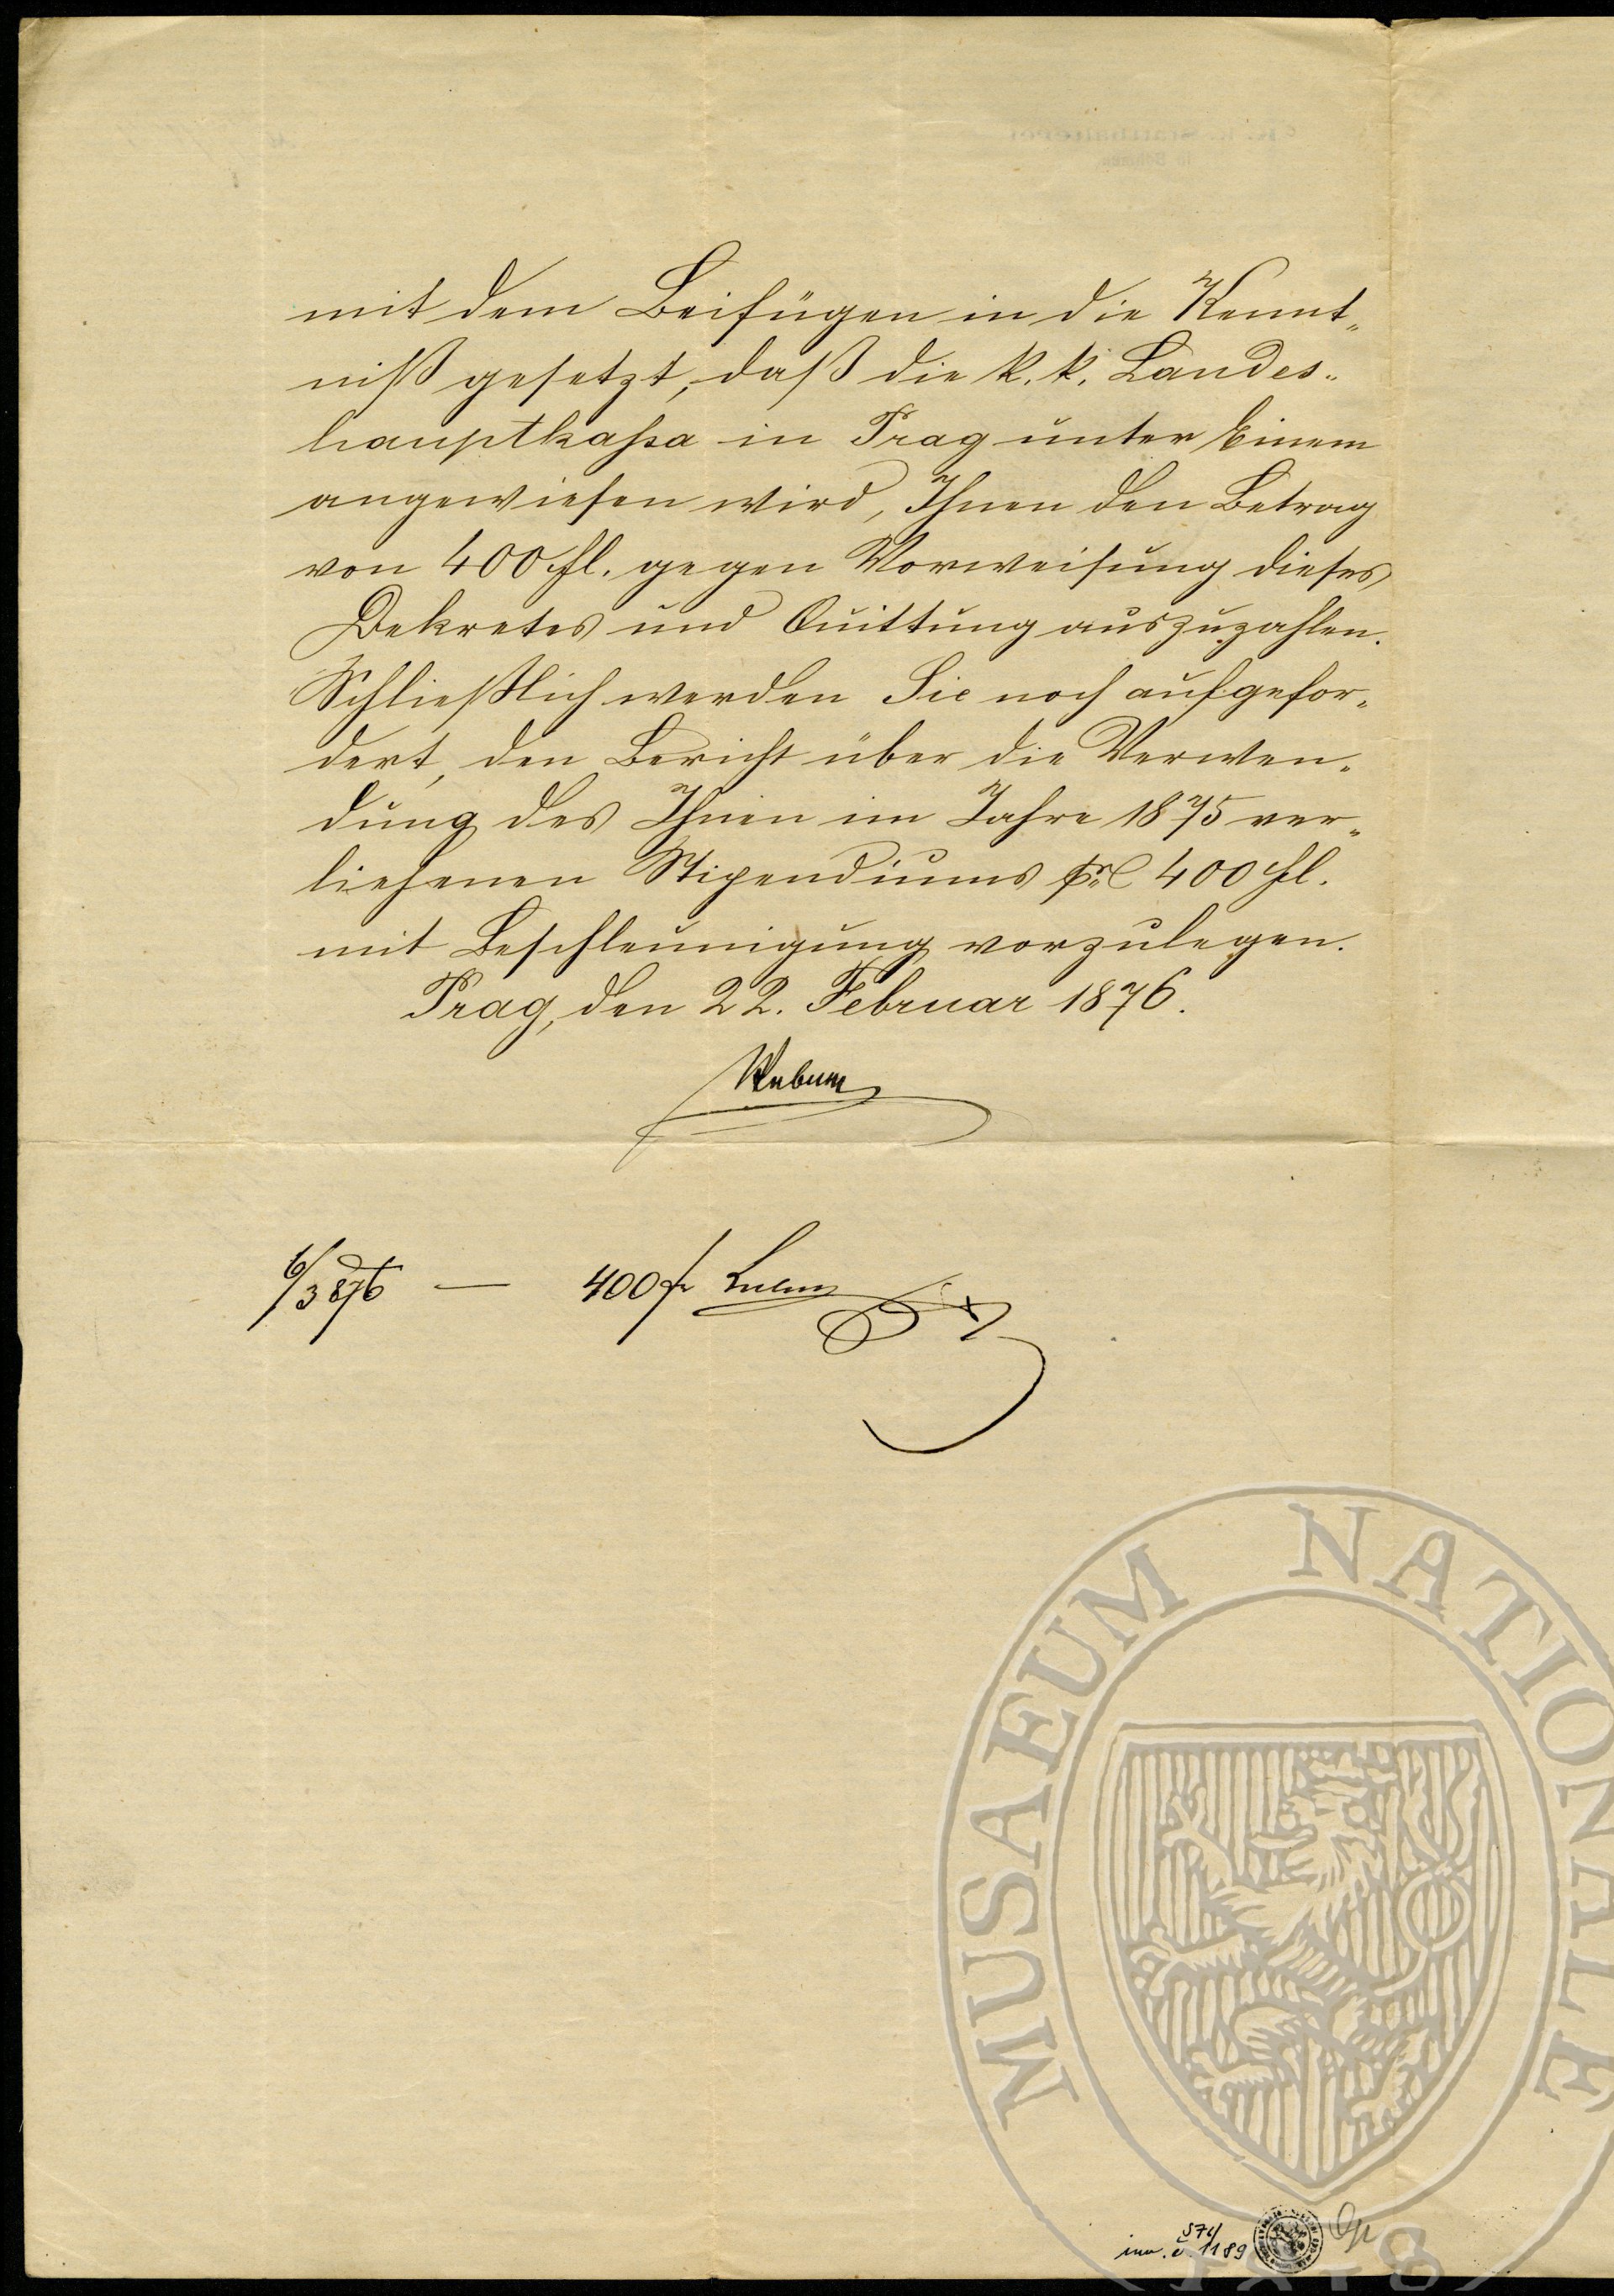 mit dem Beifügen in die Kennt„
niß gesetzt, daß die k. k. Landes„
hauptkassa in Prag unter Einem
angewiesen wird, Ihnen den Betrag
von 400 fl. gegen Vorweisung dieses
Dekretes und Quittung auszuzahlen.
Schließlich werden Sie noch aufgefor„
dert, den Bericht über die Verwen„
dung des Ihnen im Jahre 1875 ver„
liehenen Stipendiums pr 400 fl.
mit Beschleunigung vorzulegen.
Prag, den 22. Februar 1876.
6/3 876 — 400 f
MUSAEUM NATIONALE
1818
S 76/
inv. č. 1189